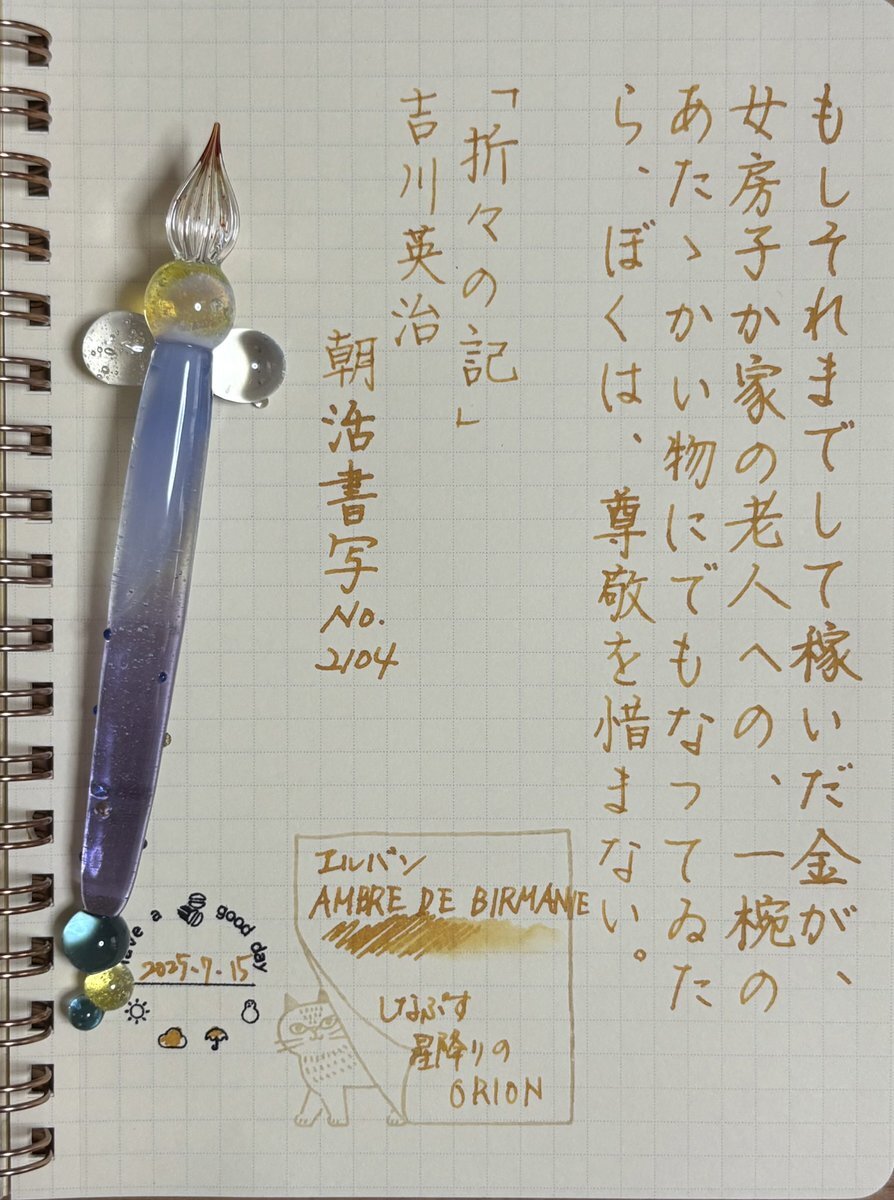 もしそれまでして稼いだ金が、
女房子か家の老人への、一椀の
あたゝかい物にでもなってゐた
ら、ぼくは、尊敬を惜まない。
「折々の記」
吉川英治
朝活書写
No.
2104
エルバン
AMBRE DE BIRMANIE
しなぷす
星降りの
ORION
have a good day
2025.7.15